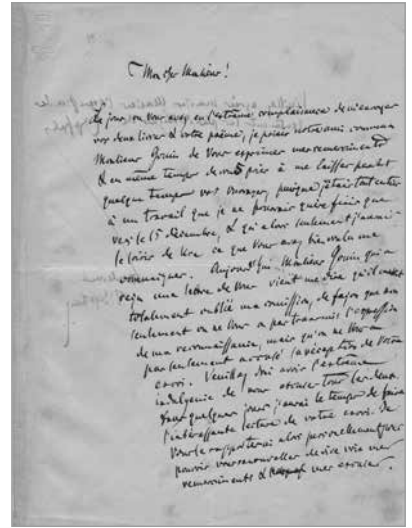 Mon cher Monsieur!
Le jour, où vous avez eu l'extrême complaisance de m'envoyer
vos deux livres & votre poème, je priais notre ami commun
Monsieur Gouin de vous exprimer mes remerciements
& en même temps de vous prier à me laisser pendant
quelque temps vos ouvrages, puisque j'étais tout entier
à un travail que je ne pourrais guère finir que
vers le 15 décembre, & qu'alors seulement j'aurai
le loisir de lire ce que vous avez bien voulu me
communiquer. Aujourd'hui Monsieur Gouin qui a
reçu une lettre de vous vient me dire qu'il avait
totalement oublié ma comission, de façon que non
seulement on ne vous a pas transmis l'expression
de ma reconnaissance, mais qu'on ne vous a
pas seulement accusé la réception de votre
envoi. Veuillez donc avoir l'extrême
indulgence de nous excuser tous les deux.
Dans quelques jours j'aurai le temps de faire
l'intéressante lecture de votre envoi. Je
vous le rapporterai alors personnellement pour
pouvoir vous renouveller de vive voix mes
remerciments & mes excuses.